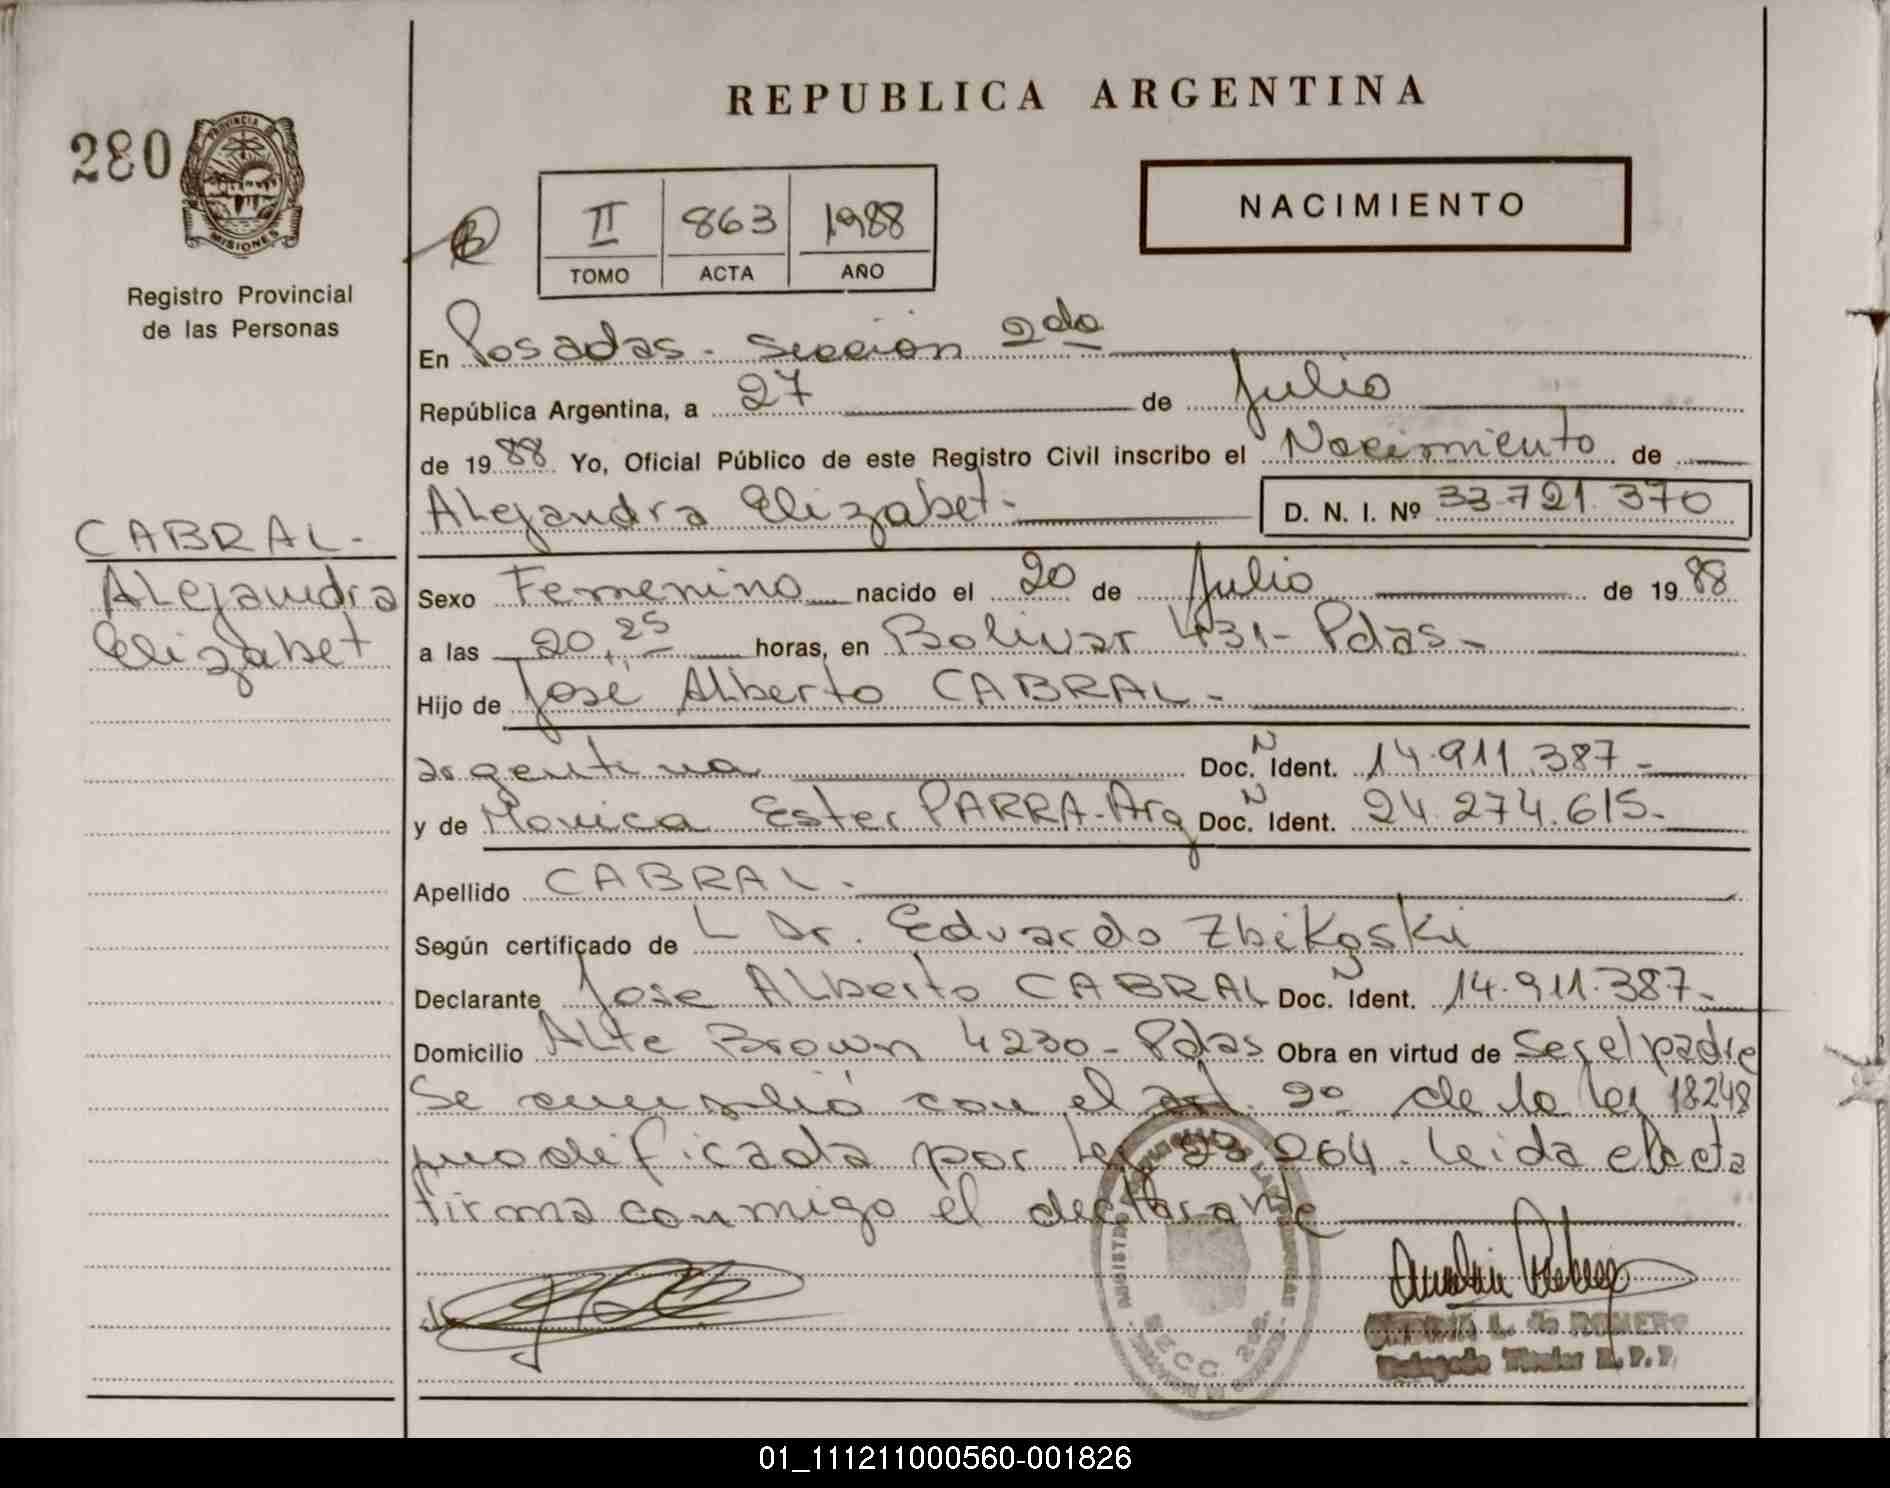 REPUBLICA ARGENTINA
280
PROVINCIA DE
MISIONES
Registro Provincial
de las Personas
II 863 1988
TOMO ACTA AÑO
NACIMIENTO
En Posadas - Sección 2da
República Argentina, a 27 de Julio
de 1988 Yo, Oficial Público de este Registro Civil inscribo el Nacimiento de
Alejandra Elizabet - D. N. I. Nº 33.721.370
CABRAL -
Alejandra
Elizabet
Sexo Femenino nacido el 20 de Julio de 1988
a las 20,25 horas, en Bolivar 431 - Pdas -
Hijo de José Alberto CABRAL -
argentina Doc. N Ident. 14.911.387 -
y de Monica Ester PARRA - Arg Doc. N Ident. 24.274.615 -
Apellido CABRAL -
Según certificado de L Dr. Eduardo Zbikoski
Declarante Jose Alberto CABRAL Doc. N Ident. 14.911.387 -
Domicilio Alte Brown 4230 - Pdas Obra en virtud de ser el padre
Se cumplió con el art. 2º de la ley 18248
modificada por ley 23264. Leida el acta
firma conmigo el declarante
SECC. 2da.
L. de ROMERO
Delegado Titular R. P. P.
01_111211000560-001826